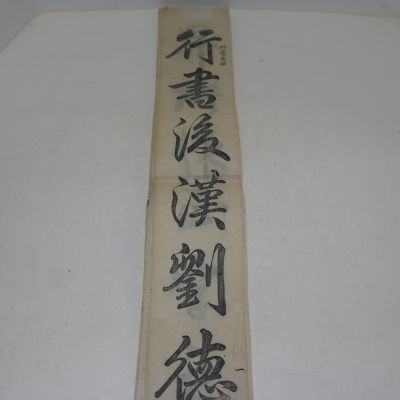 行書後漢劉德
一